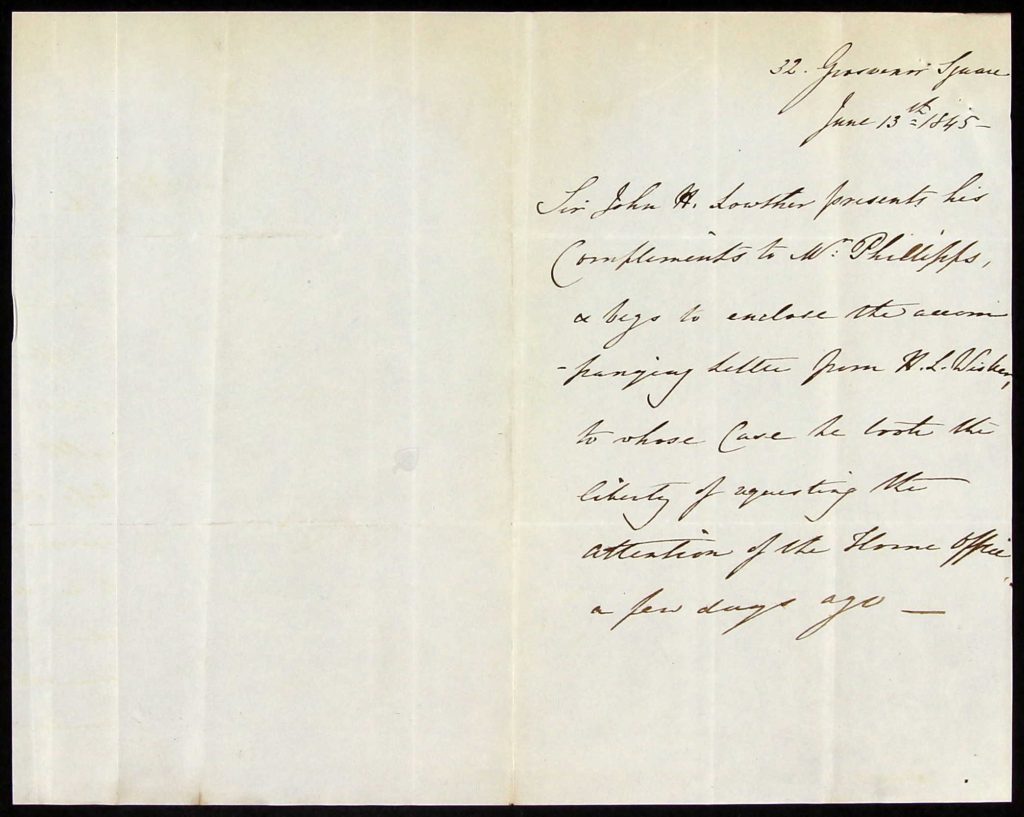 32. Grosvenor Square
June 13th 1845 –
Sir John H. Lowther presents his
Compliments to Mr. Phillipps,
& begs to enclose the accom
-panying letter from H. L.
to whose Case he took the
liberty of requesting the
attention of the Home Office
a few days ago —